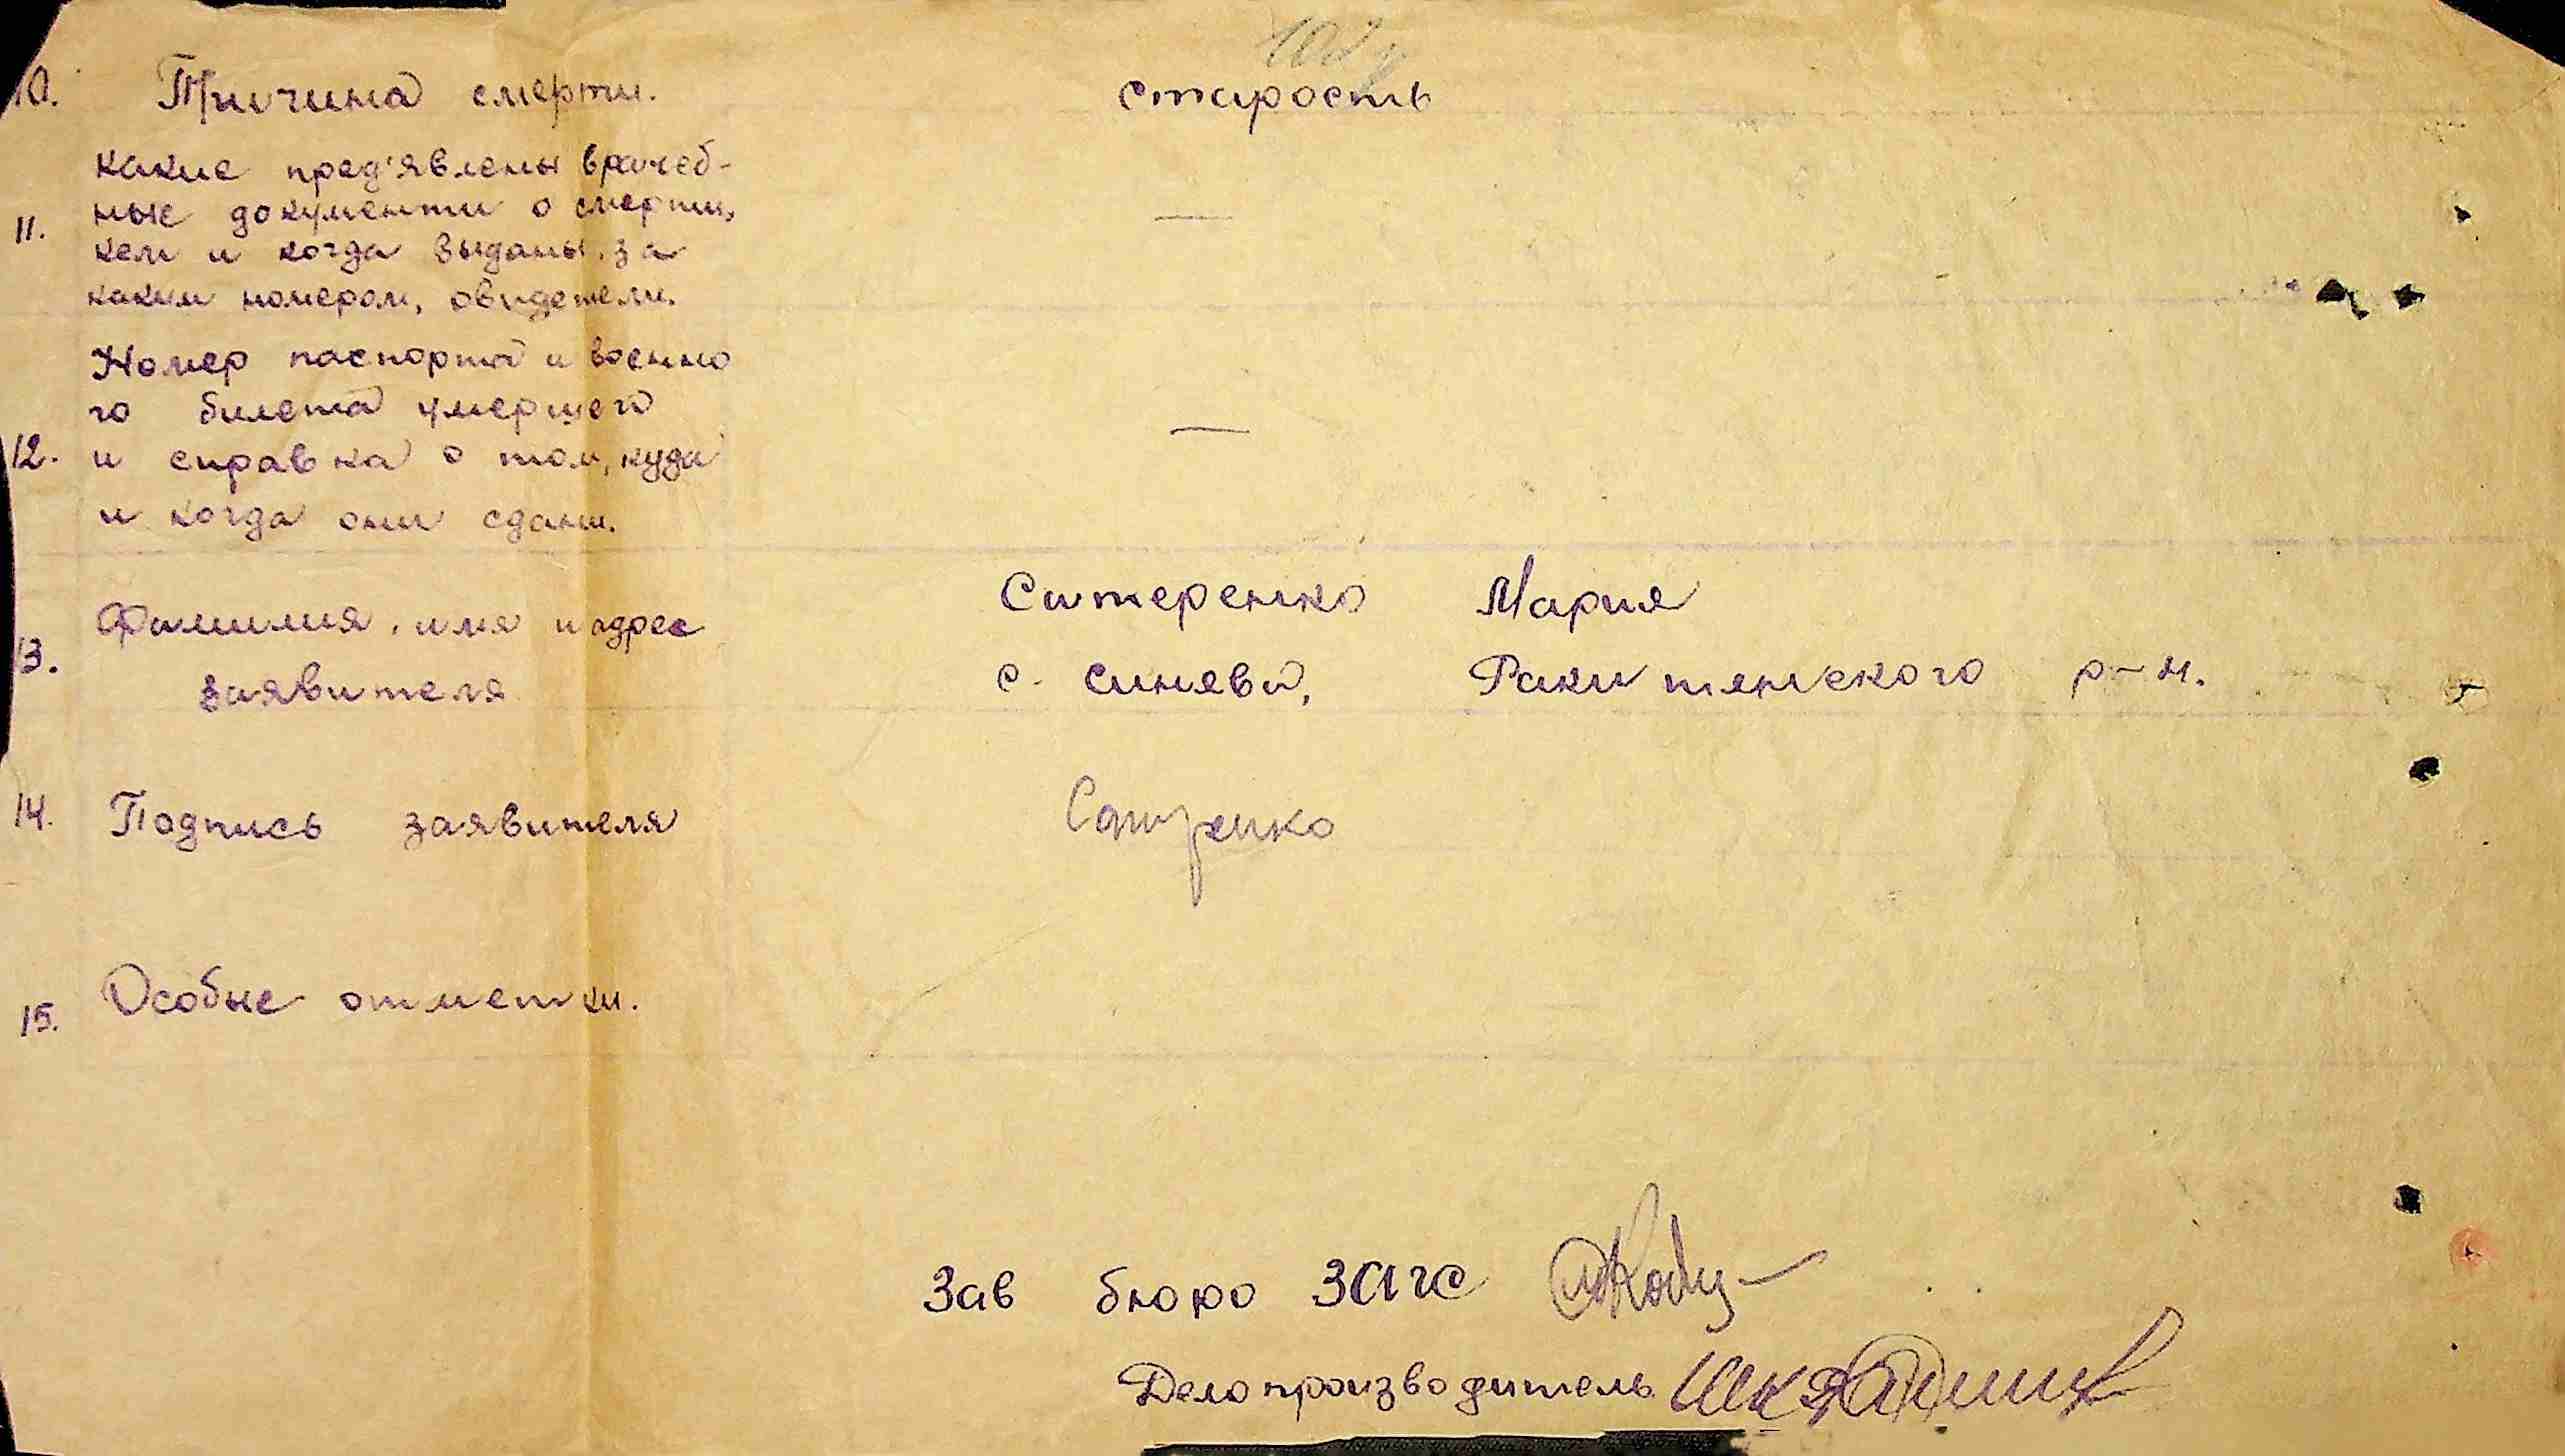 10. Причина смерти. старость
какие пред'явлены врачеб-
ные документи о смерти,
11. —
кем и когда выданы, за
каким номером, свидетели.
Номер паспорта и военно
го билета умершего
12. и справка о том, куда —
и когда они сдани.
Фамилия, имя и адрес Ситеренко Мария
13.
заявителя с. Синява, Ракитянского р-н.
14. Подпись заявителя
15. Особые отметки.
Зав бюро ЗАГС
Делопроизводитель